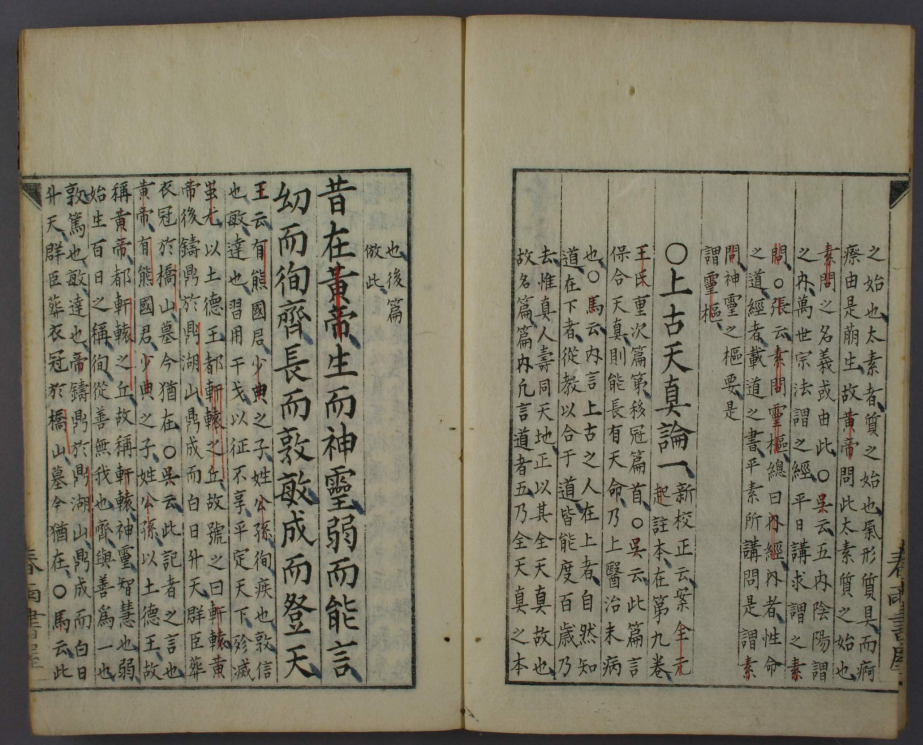 之始也太素者質之始也氣形質具而痾
瘵由是萠生故黃帝問此太素質之始也
素問之名義或由此〇吳云五內陰陽謂
之內萬世宗法謂之經平日講求謂之素
問〇張云素問靈樞總曰內經內者性命
之道經者載道之書平素所講問是謂素
問神靈之樞要是
謂靈樞
〇上古天真論一
新校正云案全元
起註本在第九卷
王氏重次篇第移冠篇首〇吳云此篇言
保合天真則能長有天命乃上醫治未病
也〇馬云內言上古之人在上者自然知
道在下者從教以合于道皆能度百歲乃
去惟真人壽同天地正以其全天真故也
故名篇篇內凡言道者五乃全天真之本
也後篇
倣此
昔在黃帝生而神靈弱而能言
幼而徇齊長而敦敏成而登天
王云有熊國君少典之子姓公孫徇疾也敦信
也敏達也習用干戈以征不享平定天下殄滅
蚩尤以土德王都軒轅之丘故號之曰軒轅黃
帝後鑄鼎於鼎湖山鼎成而白日升天群臣葬
衣冠於橋山墓今猶在〇吳云此記者之言也
黃帝有熊國君少典之子姓公孫以土德王故
稱黃帝都軒轅之丘故稱軒轅神靈智慧也弱
始生百日之稱徇從善無我也齊與善爲一也
敦篤也敏達也帝鑄鼎於鼎湖山鼎成而白日
升天群臣葬衣冠於橋山墓今猶在〇馬云此
春
書屋